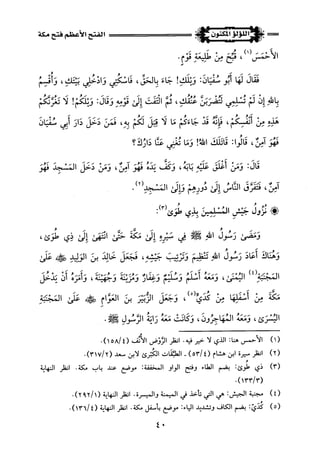 الفتح الأعظم فتح مكة
اللؤلؤ المكنون
الأَحْمَسَ (١)، قُبِّحَ مِنْ طَلِيعَةِ قَوْمٍ.
فَقَالَ لَهَا أَبُو سُفْيَانَ: وَيْلَكِ! جَاءَ بِالحَقِّ، فَاسْكُتِي وَادْخُلِي بَيْتَكِ، وَأُقْسِمُ
بِاللهِ إِنْ لَمْ تُسْلِمِي لَتُضْرَبَنَّ عُنُقُكِ، ثُمَّ التَفَتَ إِلَى قَوْمِهِ وَقَالَ: وَيْلَكُمْ! لَا تَغُرَّنَّكُمْ
هَذِهِ مِنْ أَنْفُسِكُمْ، فَإِنَّهُ قَدْ جَاءَكُمْ مَا لَا قِبَلَ لَكُمْ بِهِ، فَمَنْ دَخَلَ دَارَ أَبِي سُفْيَانَ
فَهُوَ آمِنٌ، قَالُوا: قَاتَلَكَ اللهُ! وَمَا تُغْنِي عَنَّا دَارُكَ؟
قَالَ: وَمَنْ أَغْلَقَ عَلَيْهِ بَابَهُ، وَكَفَّ يَدَهُ فَهُوَ آمِنٌ، وَمَنْ دَخَلَ المَسْجِدَ فَهُوَ
آمِنٌ، فَتَفَرَّقَ النَّاسُ إِلَى دُورِهِمْ وَإِلَى المَسْجِدِ (٢).
نُزُولُ جَيْشِ المُسْلِمِينَ بِذِي طُوَى (٣):
وَمَضَى رَسُولُ اللهِ ﷺ فِي سَيْرِهِ إِلَى مَكَّةَ حَتَّى انْتَهَى إِلَى ذِي طُوَى،
وَهُنَاكَ أَعَادَ رَسُولُ اللهِ ﷺ تَنْظِيمَ وَتَرْتِيبَ جَيْشِهِ، فَجَعَلَ خَالِدَ بنَ الوَلِيدِ ﷺ عَلَى
المَجْنَبَةِ (٤) اليُمْنَى، وَمَعَهُ أَسْلَمُ وَسُلَيْمٌ وَغِفَارٌ وَمُزَيْنَةُ وَجُهَيْنَةُ، وَأَمَرَهُ أَنْ يَدْخُلَ
مَكَّةَ مِنْ أَسْفَلِهَا مِنْ كُدَيٍّ (٥)، وَجَعَلَ الزُّبَيْرَ بنَ العَوَّامِ عَلَى المَجْنَبَةِ
اليُسْرَى، وَمَعَهُ المُهَاجِرُونَ، وَكَانَتْ مَعَهُ رَايَةُ الرَّسُولِ ﷺ.
(١) الأحمس هنا: الذي لا خير فيه. انظر الرَّوْض الأُنُف (١٥٨/٤).
(٢) انظر سيرة ابن هشام (٥٣/٤) - الطَّبقَات الكُبْرى لابن سعد (٣١٧/٢).
(٣) ذي طُوى: بضم الطاء وفتح الواو المخففة: موضع عند باب مكة. انظر النهاية
(١٣٣/٣).
(٤) مجنبة الجيش: هي التي تأخذ في الميمنة والميسرة. انظر النهاية (٢٩٢/١).
(٥) كُدَيّ: بضم الكاف وتشديد الياء: موضع بأسفل مكة. انظر النهاية (١٣٦/٤).
٤٠